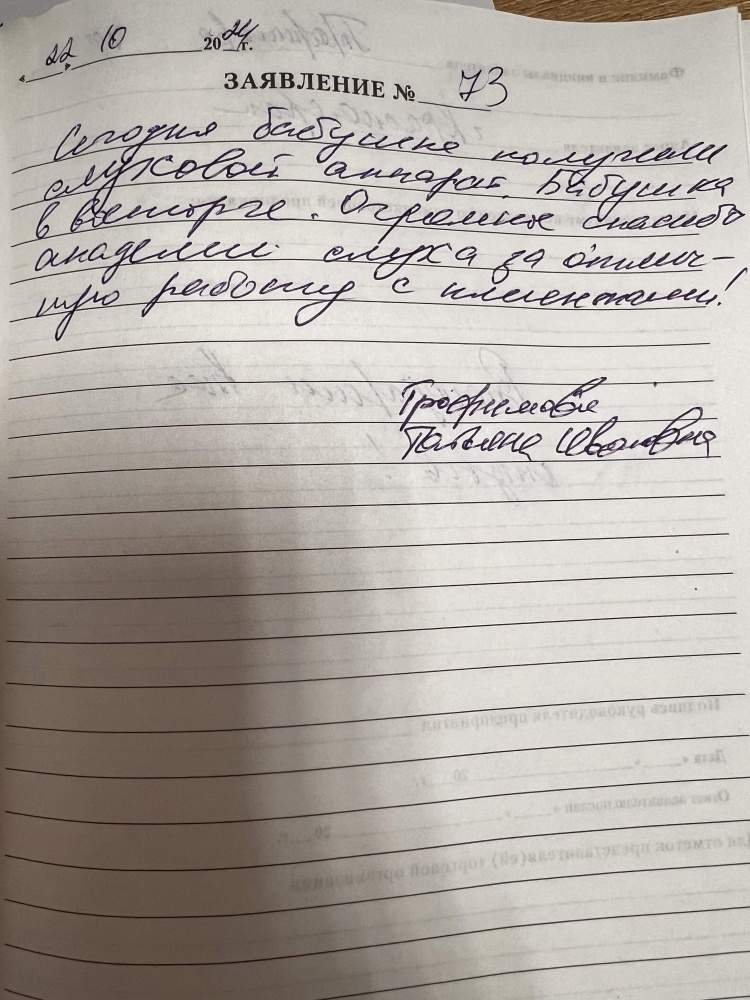 « 22 » 10 2024 г.
ЗАЯВЛЕНИЕ № 73
Сегодня бабушке получили
слуховой аппарат. Бабушка
в восторге. Огромное спасибо
академии слуха за отлич-
ную работу с клиентами!
Трофимова
Татьяна Ивановна